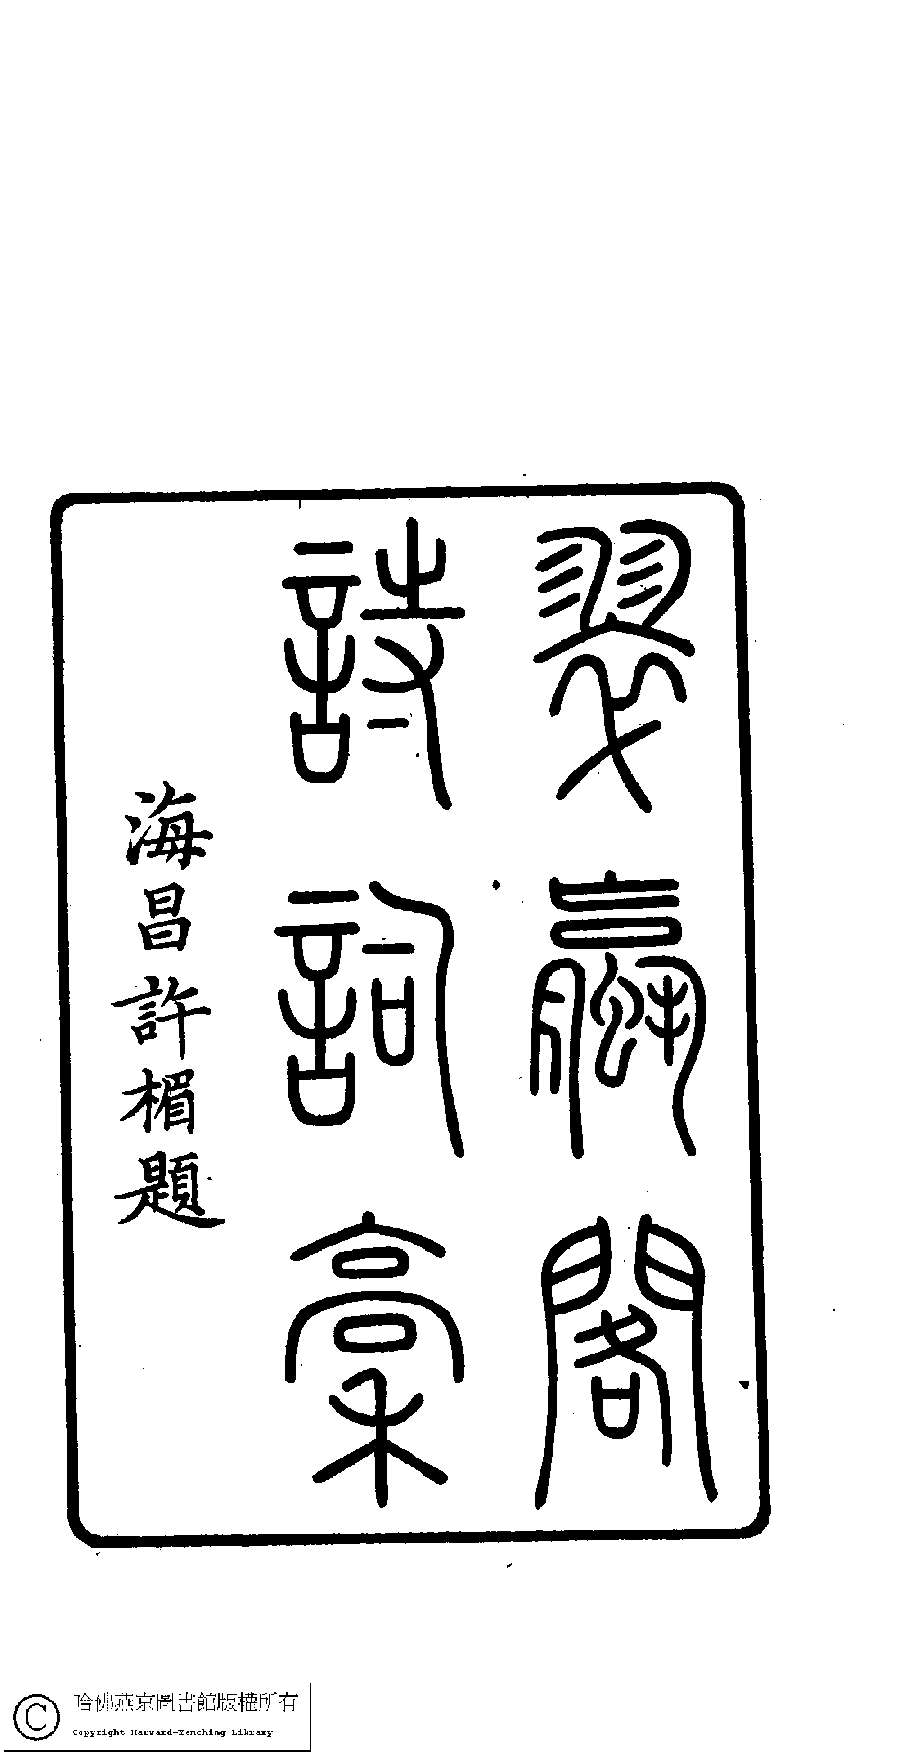 翠蠃閣
詩詞稾
海昌許楣題
哈佛燕京圖書館版權所有
Copyright Harvard-Yenching Library